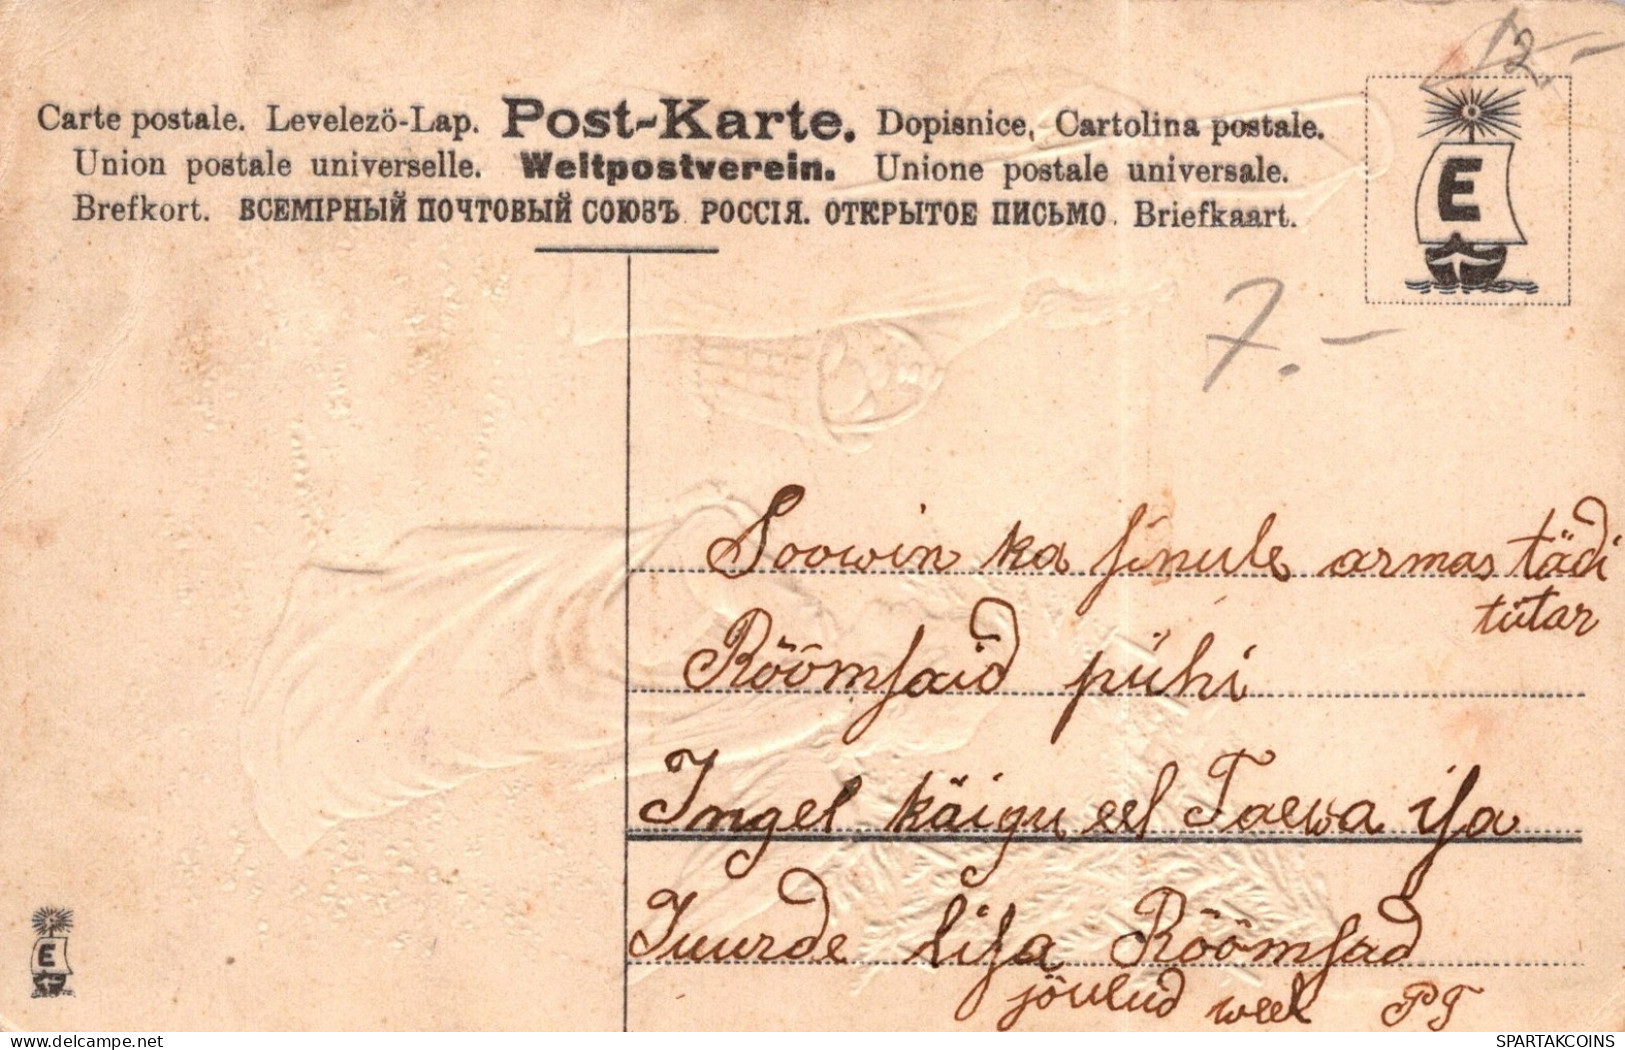 12.-
Carte postale. Levelező-Lap. Post-Karte. Dopisnice, Cartolina postale.
Union postale universelle. Weltpostverein. Unione postale universale.
Brefkort. ВСЕМІРНЫЙ ПОЧТОВЫЙ СОЮЗЪ РОССІЯ. ОТКРЫТОЕ ПИСЬМО. Briefkaart.
E
7.-
Soowin ka sinule armas tädi
tütar
Röömsaid pühi
Ingel käigu eel Taewa isa
Juurde lisa Röömsad
jöulud weel PT
E
SPARTAKCOINS